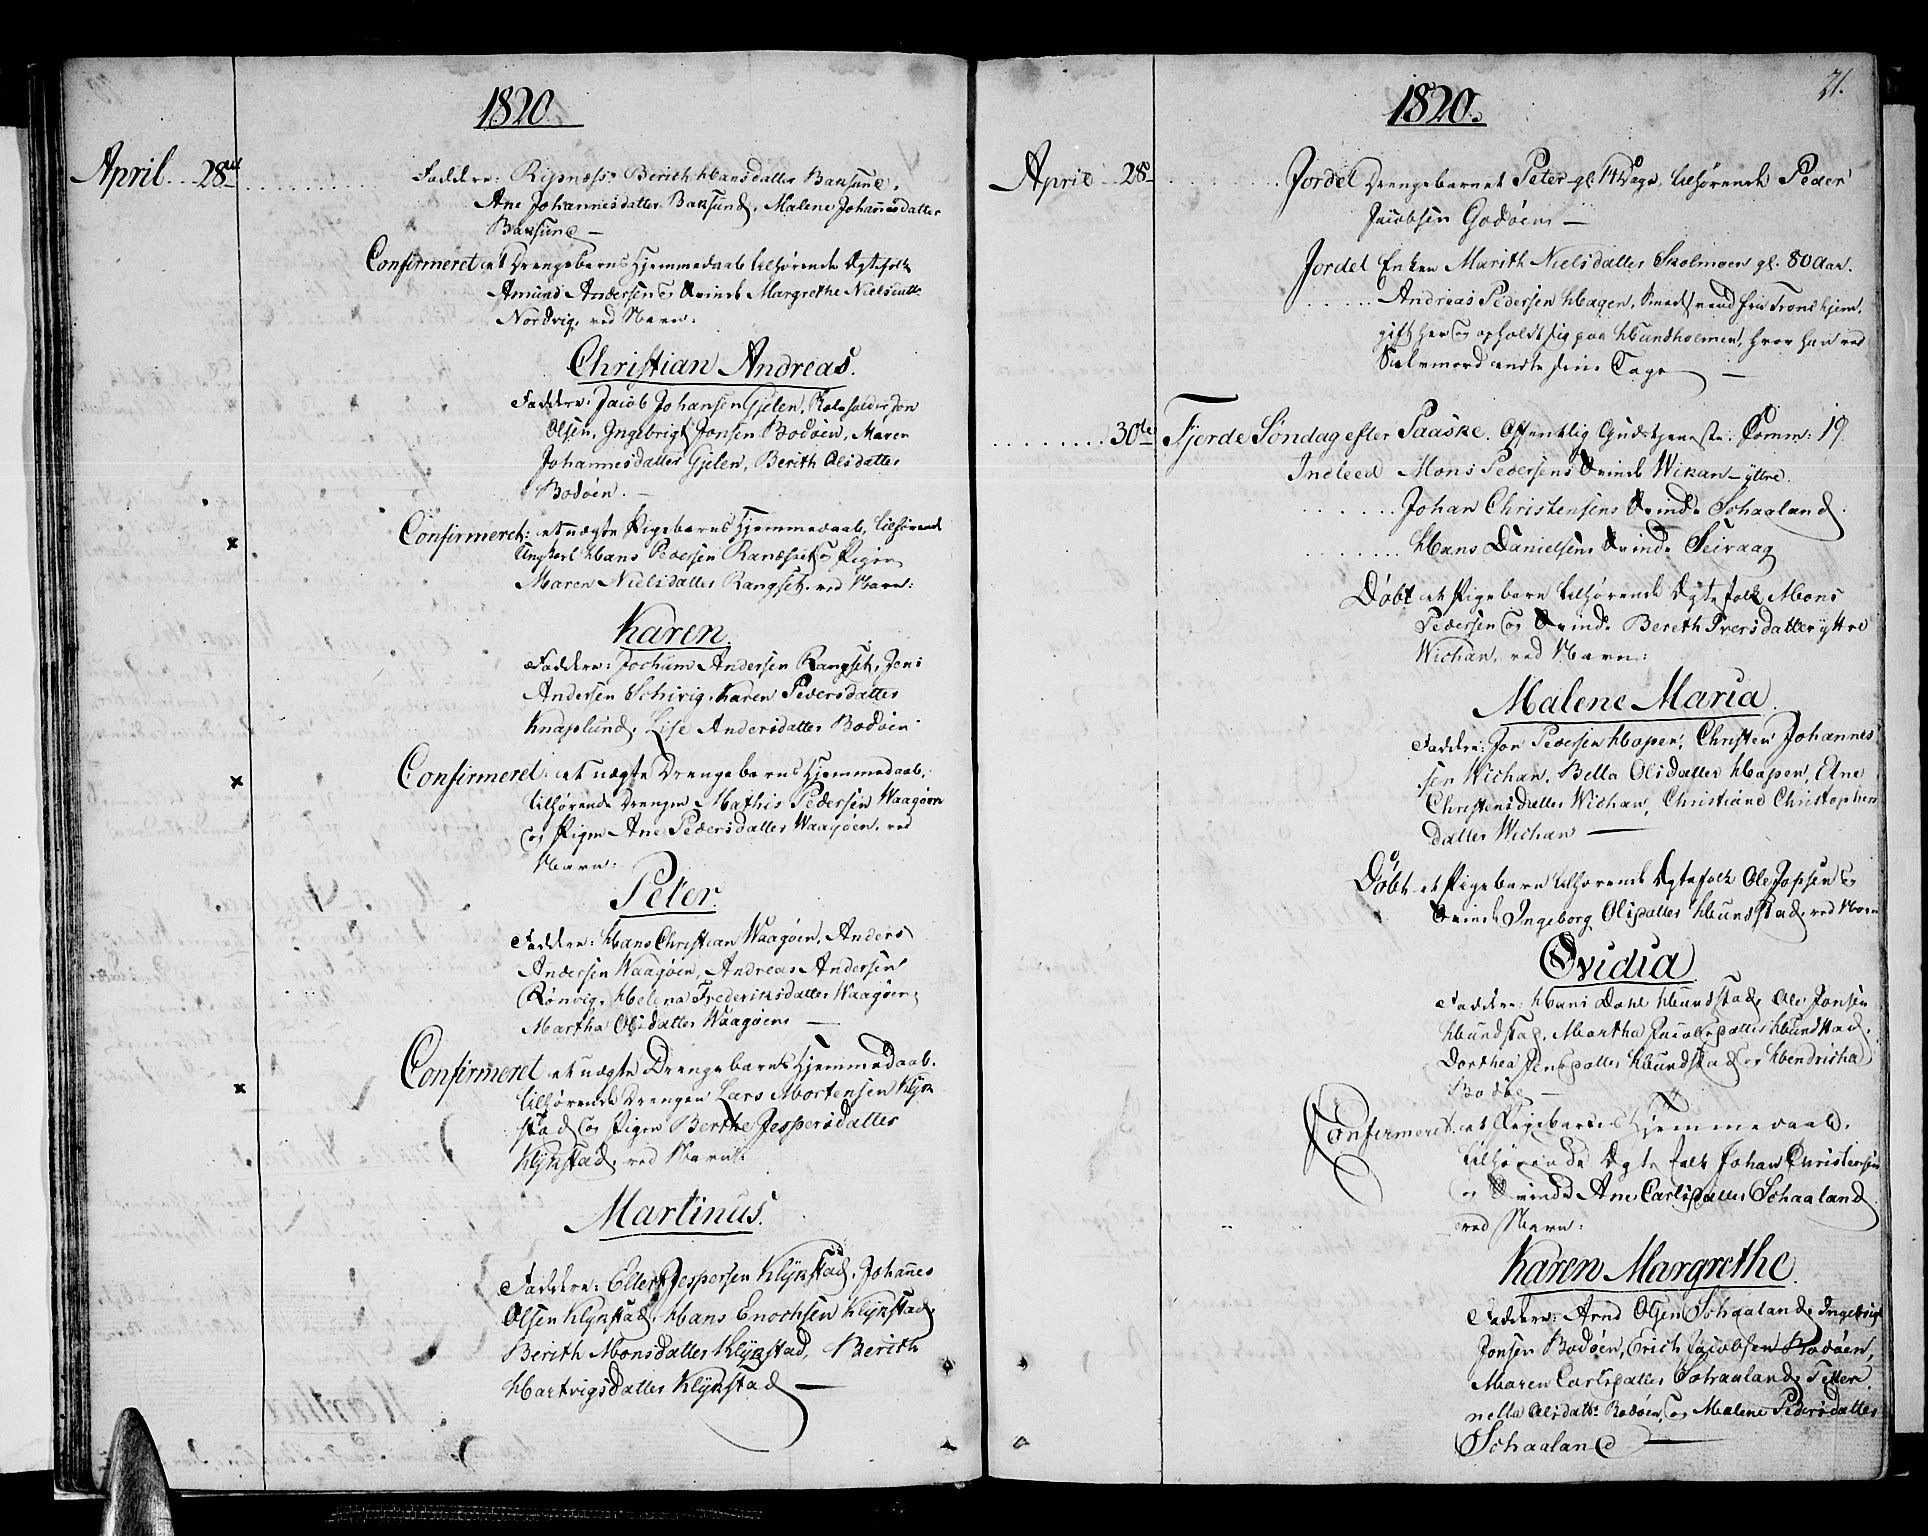 1820
April 28de
Faddere: Ripnæss, Berith Hansdatter Baksund,
Ane Johannesdatter Baksund, Malene Johañesdatter
Baksund —
Confirmeret et Drengebarns Hjemmedaab tilhørende Ægtefolk
Amund Andersen og Qvinde Margrethe Nielsdatt:
Nordvig, ved Navn:
Christian Andreas.
Faddere: Jacob Johansen Gjelen, Jon
Olsen, Ingebrigt Jonsen Bodøen, Maren
Johannesdatter Gjelen, Berith Olsdatter
Bodøen. —
Confirmeret: et uægte Pigebarns Hjemmedaab, tilhørende
Ungkarl Hans Pedersen Rangset og Pigen
Maren Nielsdatter Rangset, ved Navn:
Karen.
Faddere: Jochum Andersen Rangset, Jens
Andersen Schivig, Karen Pedersdatter
Knaplund, Lise Andersdatter Bodøen
Confirmeret: et uægte Drengebarns Hjemmedaab,
tilhørende Drengen Mathis Pedersen Waagøen
og Pigen Ane Pedersdatter Waagøen, ved
Navn:
Peter.
Faddere: Hans Christian Waagøen, Anders
Andersen Waagøen, Andreas Andersen
Rønvig, Helena Frederiksdatter Waagøen,
Martha Olsdatter Waagøen —
Confirmeret et uægte Drengebarns Hjemmedaab.
tilhørende Drengen Lars Mortensen Klyn
stad og Pigen Berthe Jespersdatter
Klynstad, ved Navn:
Martinus.
Faddere: Ellert Jespersen Klynstad, Johañes
Olsen Klynstad, Hans Enochsen Klynstad,
Berith Monsdatter Klynstad, Berith
Hartvigsdatter Klynstad —
1820.
21.
April 28de
Jordet Drengebarnet Peter gl. 14 Dage, tilhørende Peder
Jacobsen Godøen —
Jordet Enken Marith Nielsdatter Skolmoen gl. 80 Aar.
Andreas Pedersen Hagen, Smedsvend fra Trondhjem,
gift her og opholdt sig paa Hundholmen, hvor han ved
Selvmord endte sine Dage —
30te Fjerde Søndag efter Paaske. Offentlig Gudstjeneste. Comm: 19.
Indleed Mons Pedersens Qvinde Wikan-yttre.
Johan Christensens Qvinde Schaaland.
Hans Danielsens Qvinde Seivaag
Døbt et Pigebarn tilhørende Ægtefolk Mons
Pedersen og Qvinde Bereth Iversdatter yttre
Wichan, ved Navn:
Malene Maria.
Faddere: Jon Pedersen Hopen, Christen Johannes
sen Wichan, Bella Olsdatter Hopen, Ane
Christensdatter Wichan, Christiane Christophers
datter Wichan —
Døbt et Pigebarn tilhørende Ægtefolk Ole Jonsen og
Qvinde Ingeborg Olsdatter Hundstad, ved Navn
Ovidia.
Faddere: Hans Dahl Hundstad, Ole Jonsen
Hundstad, Martha Jacobsdatter Hundstad,
Dorthea Jensdatter Hundstad og Hendricha
Bodøe —
Confirmeret et Pigebarns Hjemmedaab,
tilhørende Ægtefolk Johan Christensen
og Qvinde Ane Carlsdatter Schaaland
ved Navn:
Karen Margrethe.
Faddere: Arnd Olsen Schaaland, Ingebrigt
Jonsen Bodøen, Erich Jacobsen Bodøen,
Maren Carlsdatter Schaaland, Petter
nella Olsdatt: Bodøen, og Malene Pedersdatter
Schaaland —